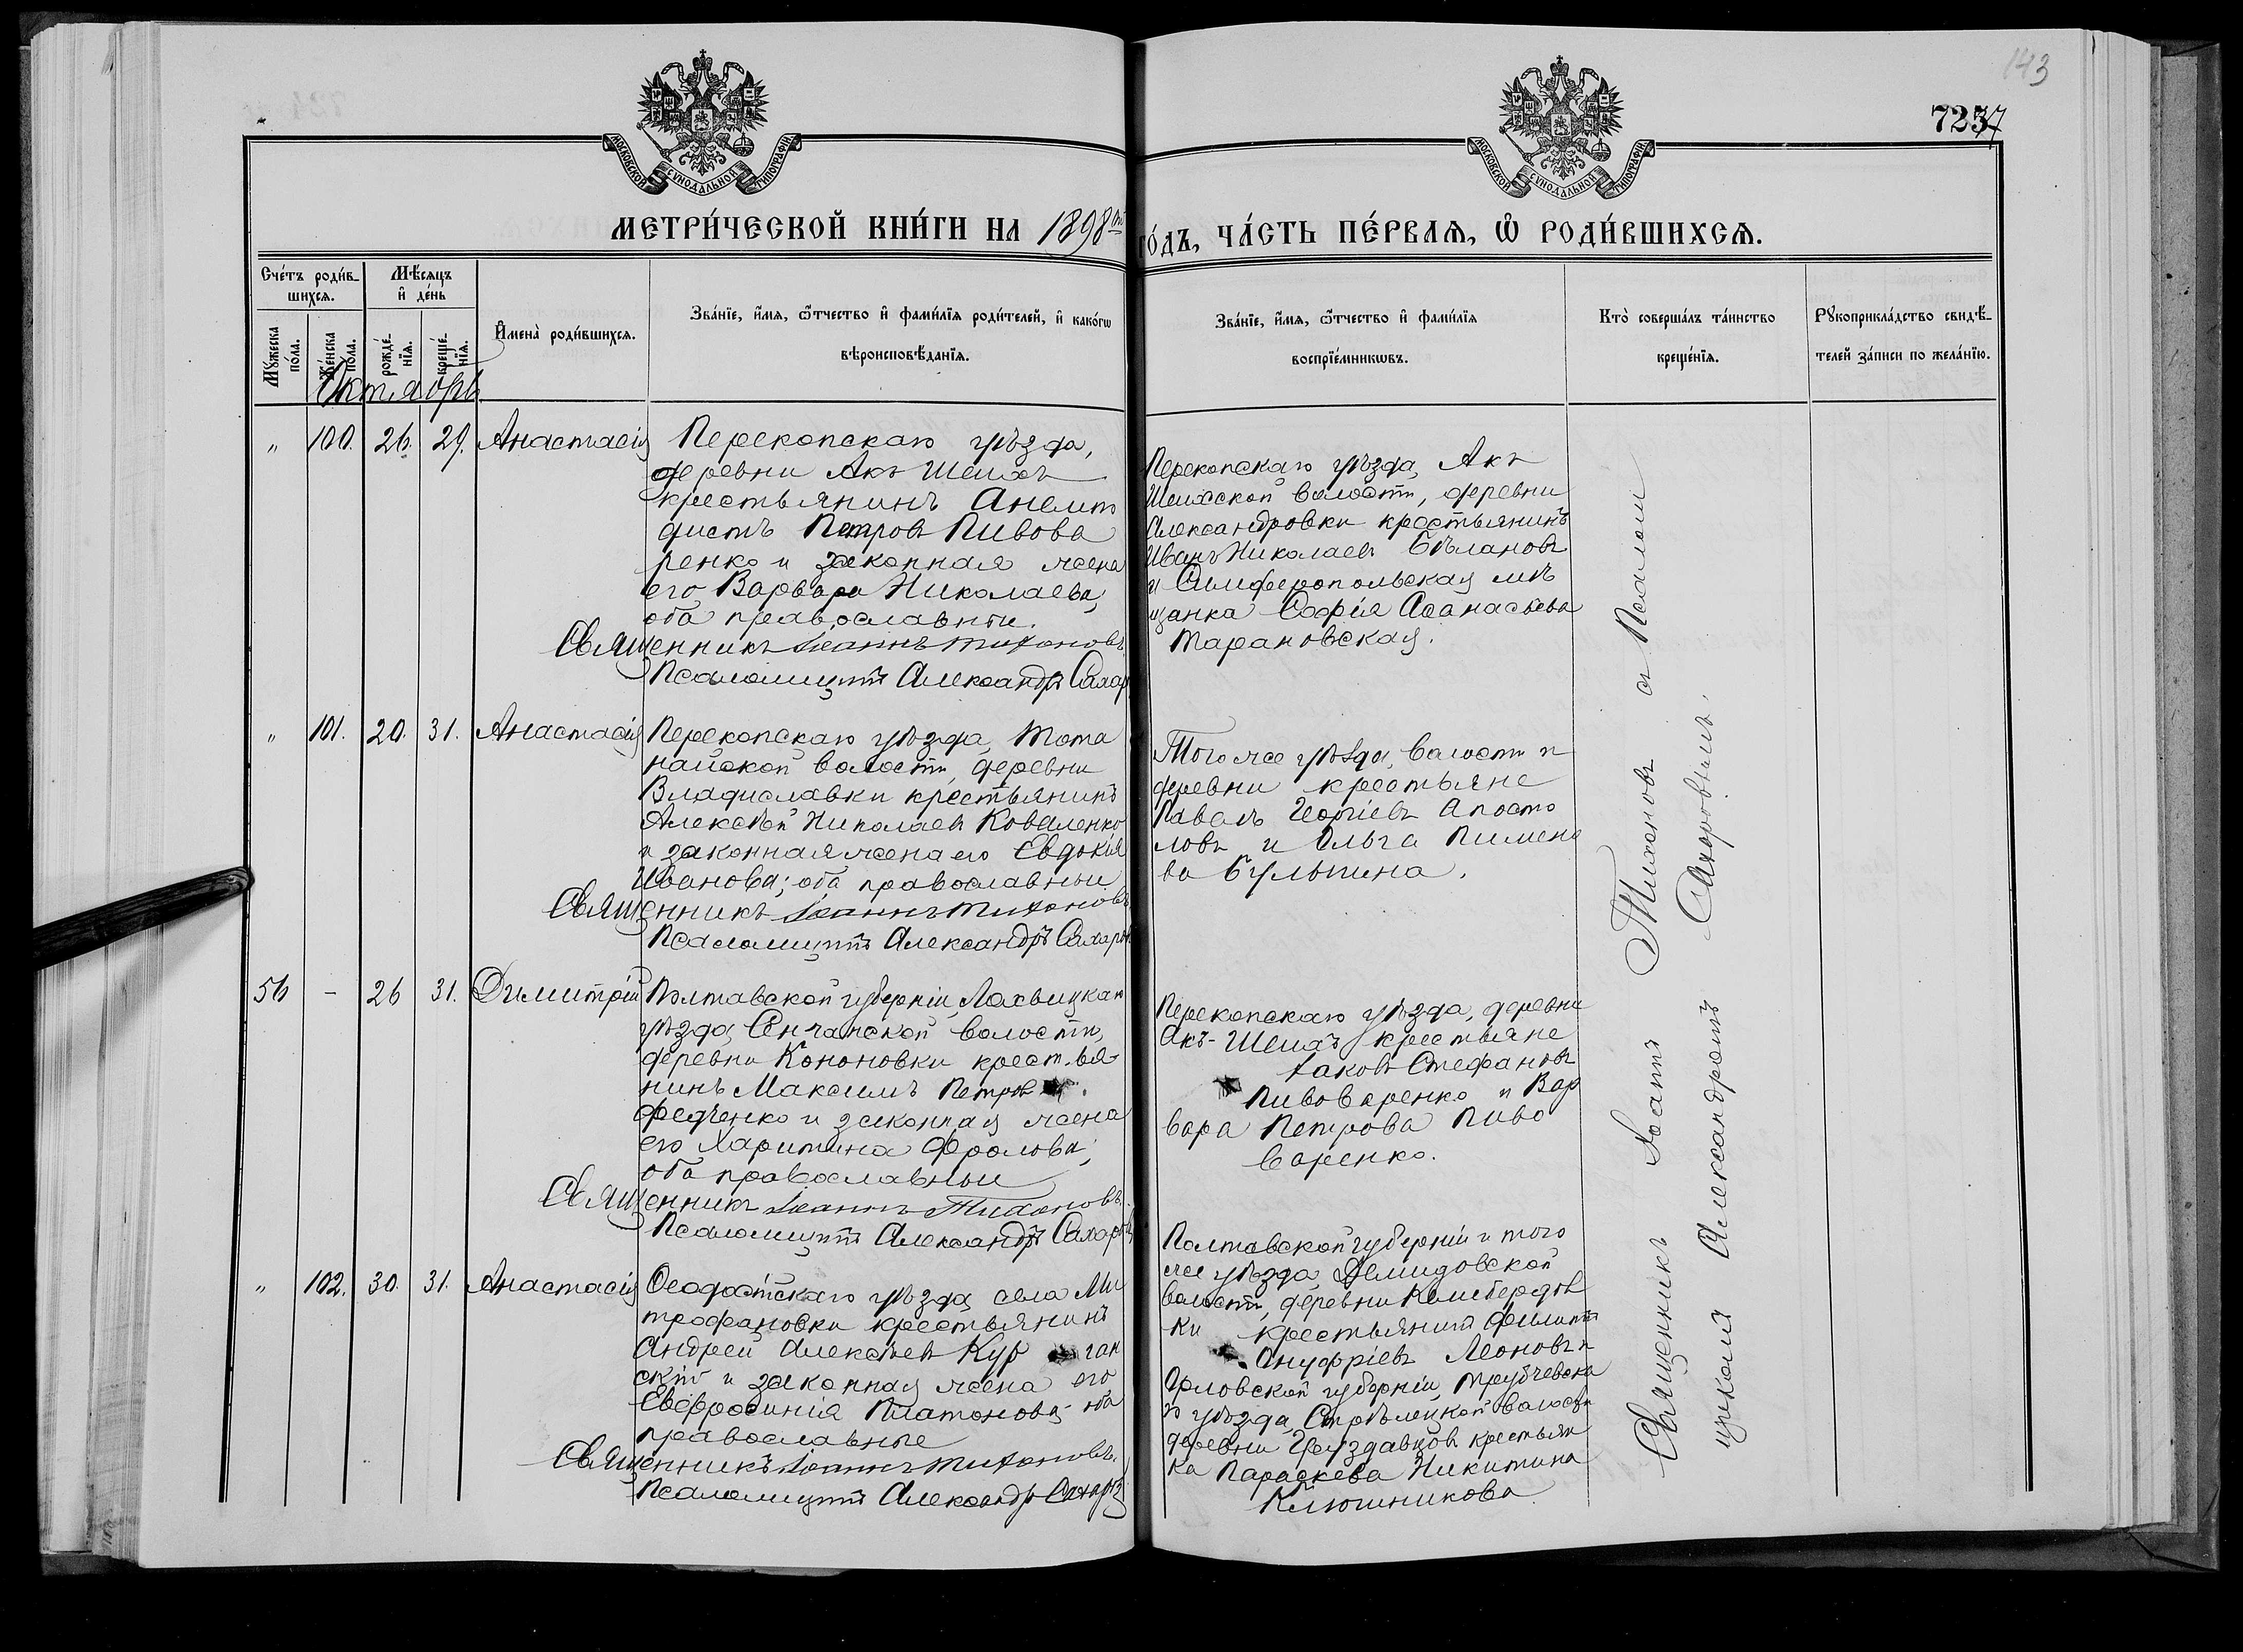 143
7237
МОСКОВСКОЙ СѴНОДАЛЬНОЙ ТИПОГРАФІИ
МОСКОВСКОЙ СѴНОДАЛЬНОЙ ТИПОГРАФІИ
МЕТРИ́ЧЕСКОЙ КНИ́ГИ НА 1898й
ГО́ДЪ, ЧА́СТЬ ПЕ́РВАѦ, Ѡ РОДИ́ВШИХСѦ.
Сче́тъ роди́в-
шихсѧ.
Мѣ́сѧцъ
и де́нь
Мꙋ́жеска
по́ла.
Же́нска
по́ла.
рожде́-
нїѧ.
креще́-
нїѧ.
И҆мена̀ роди́вшихсѧ.
Зва́нїе, и҆́мѧ, ѻ҆́тчество и҆ фами́лїѧ роди́телей, и҆ како́гѡ
вѣроисповѣ́данїѧ.
Зва́нїе, и҆́мѧ, ѻ҆́тчество и҆ фами́лїѧ
воспрїе́мникѡвъ.
Кто̀ соверша́лъ та́инство
креще́нїѧ.
Рꙋкоприкла́дство свидѣ́-
телей за́писи по жела́нїю.
Октябрь
" 100. 26. 29. Анастасія
Перекопскаго уѣзда,
деревни Акъ Шеихъ
крестьянинъ Анемпо
дистъ Петровъ Пивова
ренко и законная жена
его Варвара Николаева,
оба православные.
Священникъ Іоаннъ Тихоновъ.
Псаломщикъ Александръ Сахар
Перекопскаго уѣзда, Акъ
Шеихской волости, деревни
Александровки крестьянинъ
Иванъ Николаевъ Бѣлановъ
и Симферопольская мѣ
щанка Софія Аѳанасьева
Тарановская.
" 101. 20. 31. Анастасія
Перекопскаго уѣзда, Тота
найской волости, деревни
Владиславки крестьянинъ
Алексѣй Николаевъ Коваленко
и законная жена его Евдокія
Иванова; оба православные
Священникъ Іоаннъ Тихоновъ
Псаломщикъ Александръ Сахаров
Того же уѣзда, волости и
деревни крестьяне
Павелъ Георгіевъ Апосто
ловъ и Ольга Пимено
ва Булыгина.
56 – 26 31. Димитрій
Полтавской губерніи, Лохвицкаго
уѣзда, Сенчанской волости,
деревни Кононовки крестья
нинъ Максимъ Петровъ
Федченко и законная жена
его Харитина Фролова;
оба православные
Священникъ Іоаннъ Тихоновъ.
Псаломщикъ Александръ Сахаровъ
Перекопскаго уѣзда, деревни
Акъ-Шеихъ крестьяне
Іаковъ Стефановъ
Пивоваренко и Вар
вара Петрова Пиво
варенко.
" 102. 30. 31. Анастасія
Ѳеодосійскаго уѣзда, села Ми
трофановки крестьянинъ
Андрей Алексѣевъ Кур ган
скій и законная жена его
Евфросинія Платонова, оба
православные
Священникъ Іоаннъ Тихоновъ.
Псаломщикъ Александръ Сахаровъ
Полтавской губерніи и того
же уѣзда, Демидовской
волости, деревни Камбердов
ки крестьянинъ Филиппъ
Ануфріевъ Леоновъ и
Орловской губерніи, Трубчевска
го уѣзда, Стрѣлецкой волости
деревни Груздавцов крестьян
ка Параскева Никитина
Ключникова
Священникъ Іоаннъ Тихоновъ съ Псалом
щикомъ Александромъ Сахаровымъ.